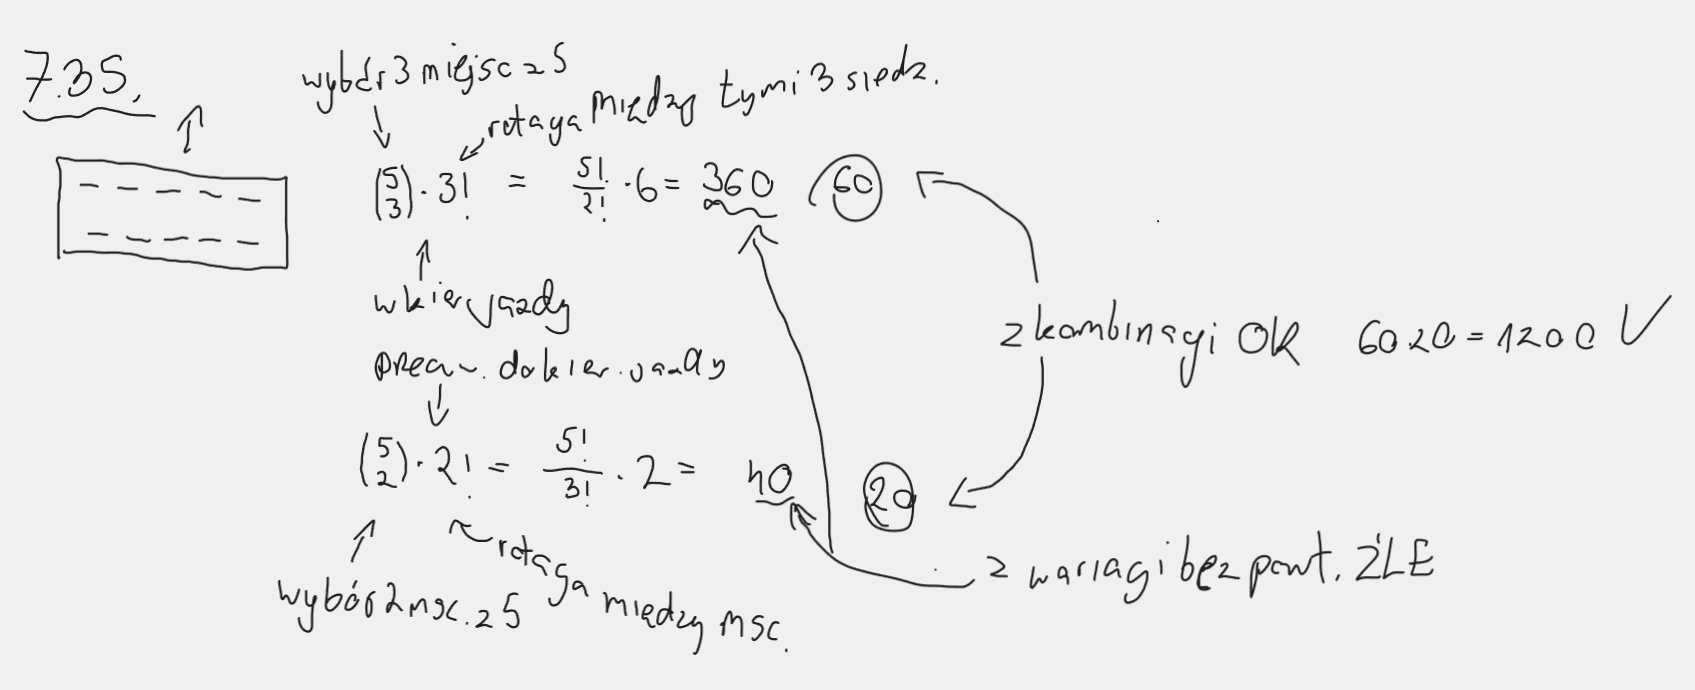 7.35.
wybór 3 miejsc z 5
rotacja między tymi 3 siedz.
(5 3) · 3! = 5!/2! · 6 = 360 60
w kier. jazdy
z kombinacji OK 60 20 = 1200 ✓
przeciw. do kier. jazdy
(5 2) · 2! = 5!/3! · 2 = 40 20
z wariacji bez powt. ŹLE
wybór 2 msc. z 5
rotacja między msc.